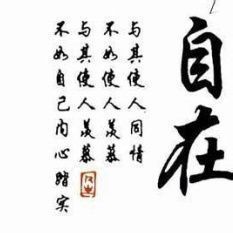 自在
与其使人同情
不如使人羡慕
与其使人羡慕
不如自己内心踏实